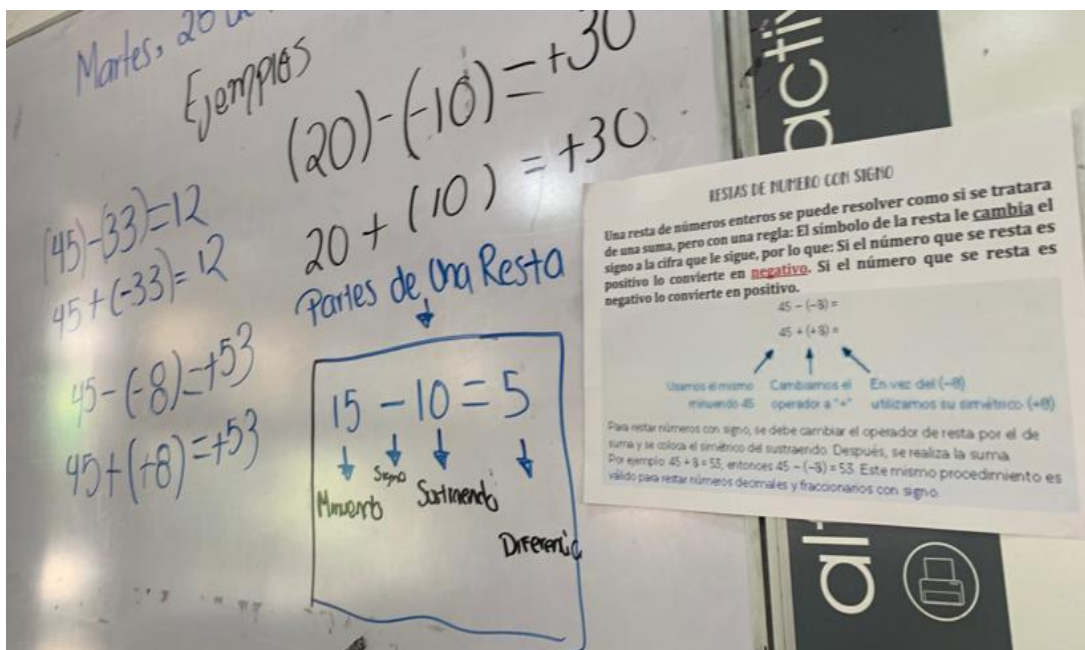 Martes, 20 de
Ejemplos
(20)-(-10)=+30
20+(10)=+30
(45)-(33)=12
45+(-33)=12
45-(-8)=+53
45+(+8)=+53
Partes de Una Resta
15-10=5
Minuendo
Signo
Sustraendo
Diferencia
activ
RESTAS DE NUMERO CON SIGNO
Una resta de números enteros se puede resolver como si se tratara
de una suma, pero con una regla: El símbolo de la resta le cambia el
signo a la cifra que le sigue, por lo que: Si el número que se resta es
positivo lo convierte en negativo. Si el número que se resta es
negativo lo convierte en positivo.
45 - (-8) =
45 + (+8) =
Usamos el mismo
minuendo 45
Cambiamos el
operador a "+"
En vez del (-8)
utilizamos su simétrico (+8)
Para restar números con signo, se debe cambiar el operador de resta por el de
suma y se coloca el simétrico del sustraendo. Después, se realiza la suma.
Por ejemplo 45 + 8 = 53, entonces 45 - (-8) = 53. Este mismo procedimiento es
válido para restar números decimales y fraccionarios con signo.